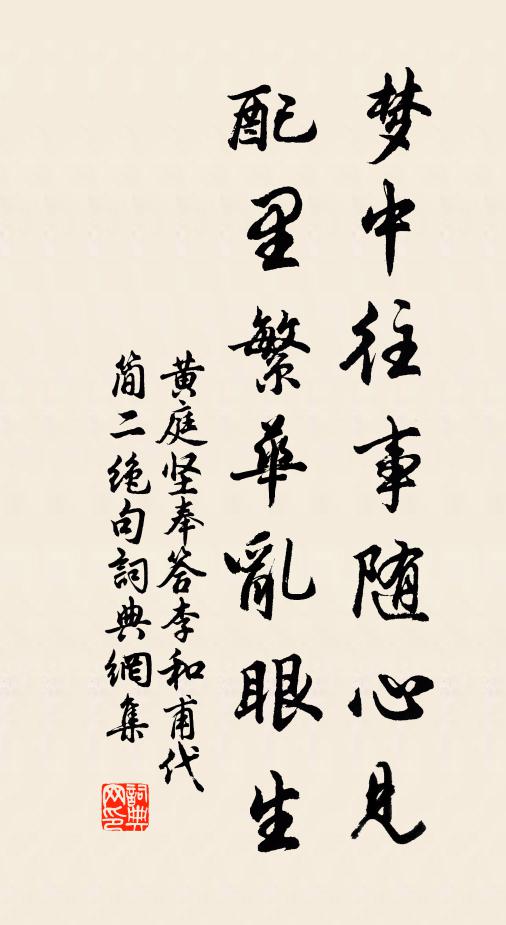 梦中往事随心见
配里繁華亂眼生
黄庭坚奉答李和甫代
简二绝句詞典網集
詞典
网印